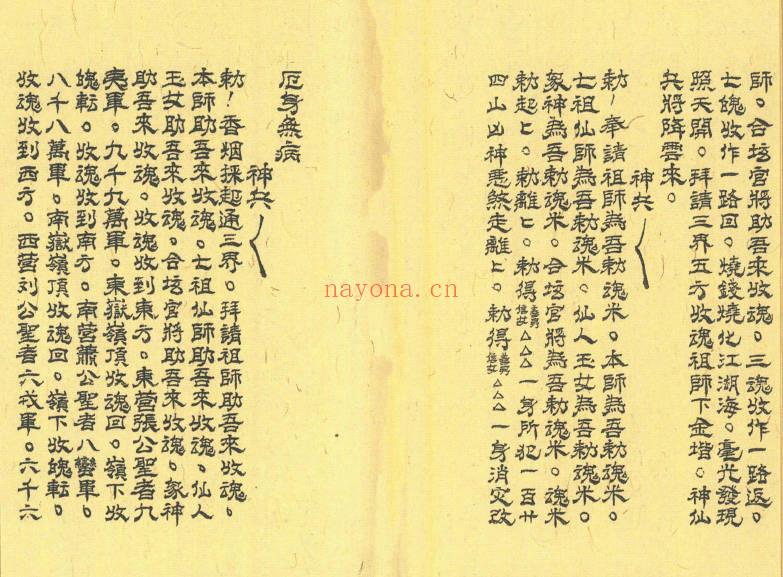 師。合坛官將助吾來收魂。三魂收作一路返。
七魄收作一路回。燒錢燒化江湖海。毫光發現
照天開。拜請三界五方收魂祖師下金堦。神仙
兵將降雲來。
神兵
勅!奉請祖師為吾勅魂米。本師為吾勅魂米。
七祖仙師為吾勅魂米。仙人玉女為吾勅魂米。
眾神為吾勅魂米。合坛官將為吾勅魂米。魂米
勅起上。勅離上。勅得善男信女△△△一身所犯一百廿
四山凶神惡煞走離上。勅得善男信女△△△一身消灾改
厄身無病
神兵
勅!香烟採起通三界。拜請祖師助吾來收魂。
本師助吾來收魂。七祖仙師助吾來收魂。仙人
玉女助吾來收魂。合坛官將助吾來收魂。眾神
助吾來收魂。收魂收到東方。東營張公聖者九
夷軍。九千九萬軍。東嶽嶺頂收魂回。嶺下收
魄転。收魂收到南方。南營蕭公聖者八蠻軍。
八千八萬軍。南嶽嶺頂收魂回。嶺下收魄転。
收魂收到西方。西營刘公聖者六戎軍。六千六
nayona.cn